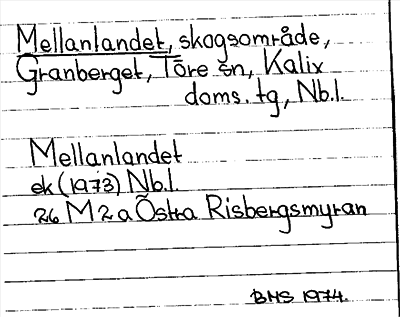 Mellanlandet, skogsområde,
Granberget, Töre sn, Kalix
doms. tg, Nb.l.
Mellanlandet
ek (1973) Nb.l.
26 M 2 a Östra Risbergsmyran
BHS 1974.